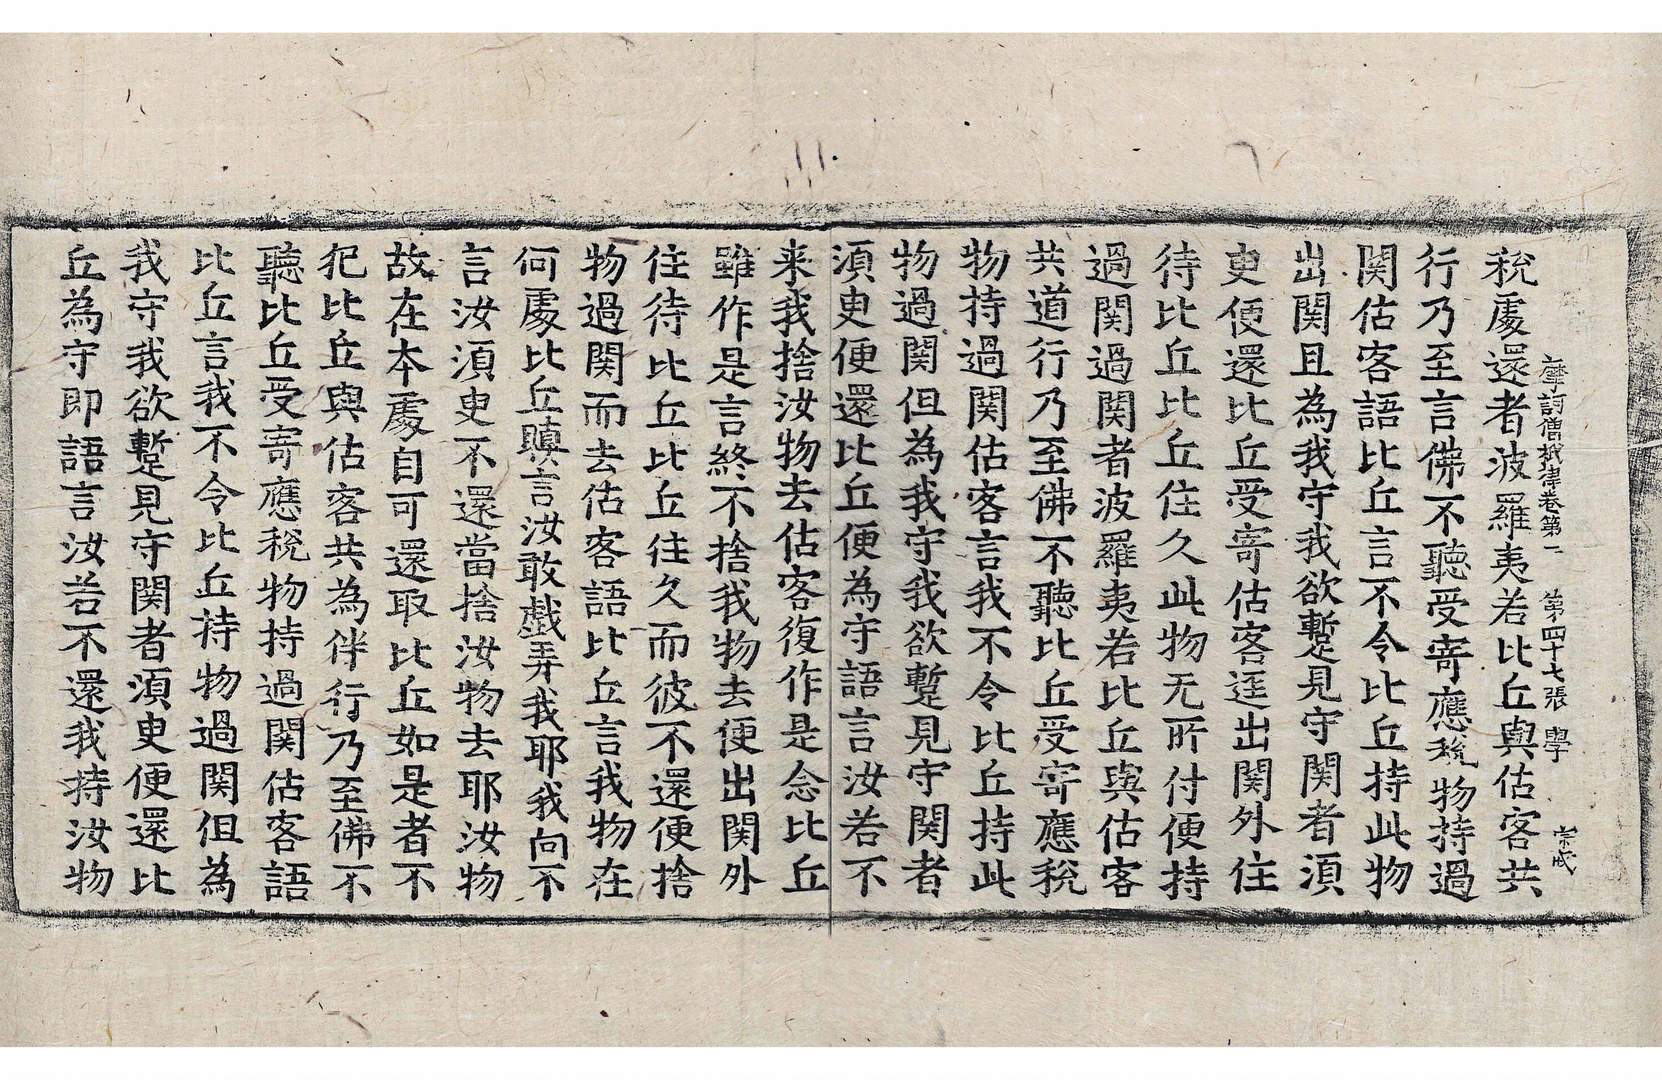 稅處還者波羅夷若比丘與估客共
摩訶僧祇律卷第二　第四十七張　學　宗成
行乃至言佛不聽受寄應稅物持過
関估客語比丘言不令比丘持此物
出関且為我守我欲蹔見守関者湏
更便還比丘受寄估客逕出関外住
待比丘比丘住久此物无所付便持
過関過関者波羅夷若比丘與估客
共道行乃至佛不聽比丘受寄應稅
物持過関估客言我不令比丘持此
物過関但為我守我欲蹔見守関者
湏更便還比丘便為守語言汝若不
来我捨汝物去估客復作是念比丘
雖作是言終不捨我物去便出関外
住待比丘比丘住久而彼不還便捨
物過関而去估客語比丘言我物在
何處比丘瞋言汝敢戲弄我耶我向不
言汝湏更不還當捨汝物去耶汝物
故在本處自可還取比丘如是者不
犯比丘與估客共為伴行乃至佛不
聽比丘受寄應稅物持過関估客語
比丘言我不令比丘持物過関但為
我守我欲蹔見守関者湏更便還比
丘為守即語言汝若不還我持汝物